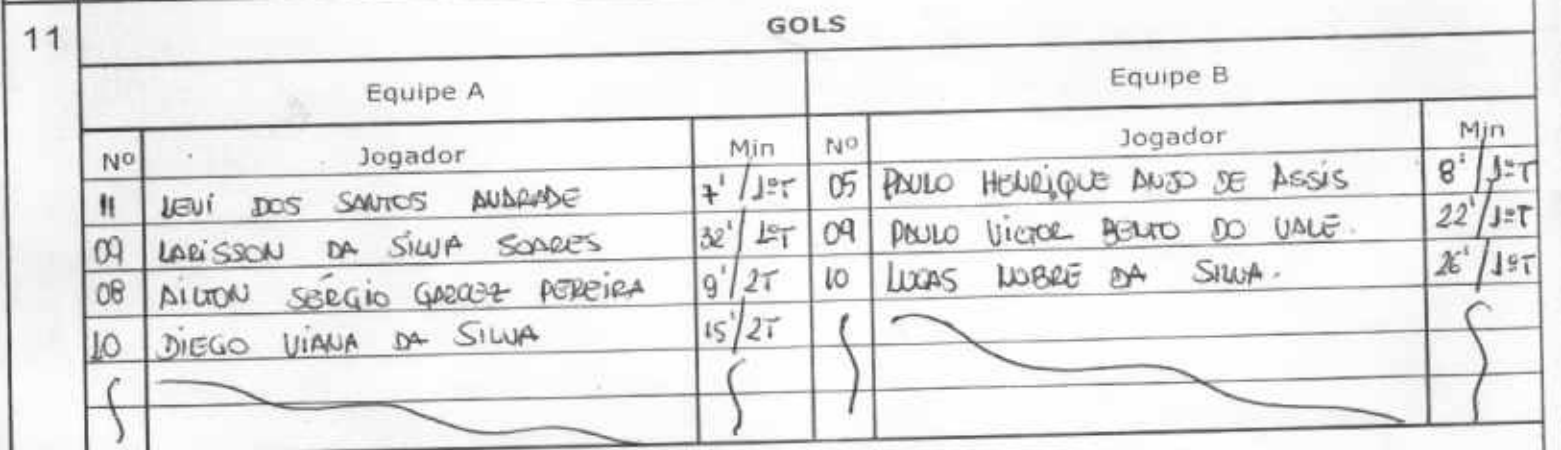 11
GOLS
Equipe A
Equipe B
Nº Jogador Min Nº Jogador Min
11 LEVI DOS SANTOS ANDRADE 7' / 1ºT 05 PAULO HENRIQUE ANJO DE ASSIS 8' / 1ºT
09 LARISSON DA SILVA SOARES 32' / 1ºT 09 PAULO VICTOR BENTO DO VALE. 22' / 1ºT
08 AILTON SÉRGIO GARCEZ PEREIRA 9' / 2T 10 LUCAS NOBRE DA SILVA. 26' / 1ºT
10 DIEGO VIANA DA SILVA 15' / 2T